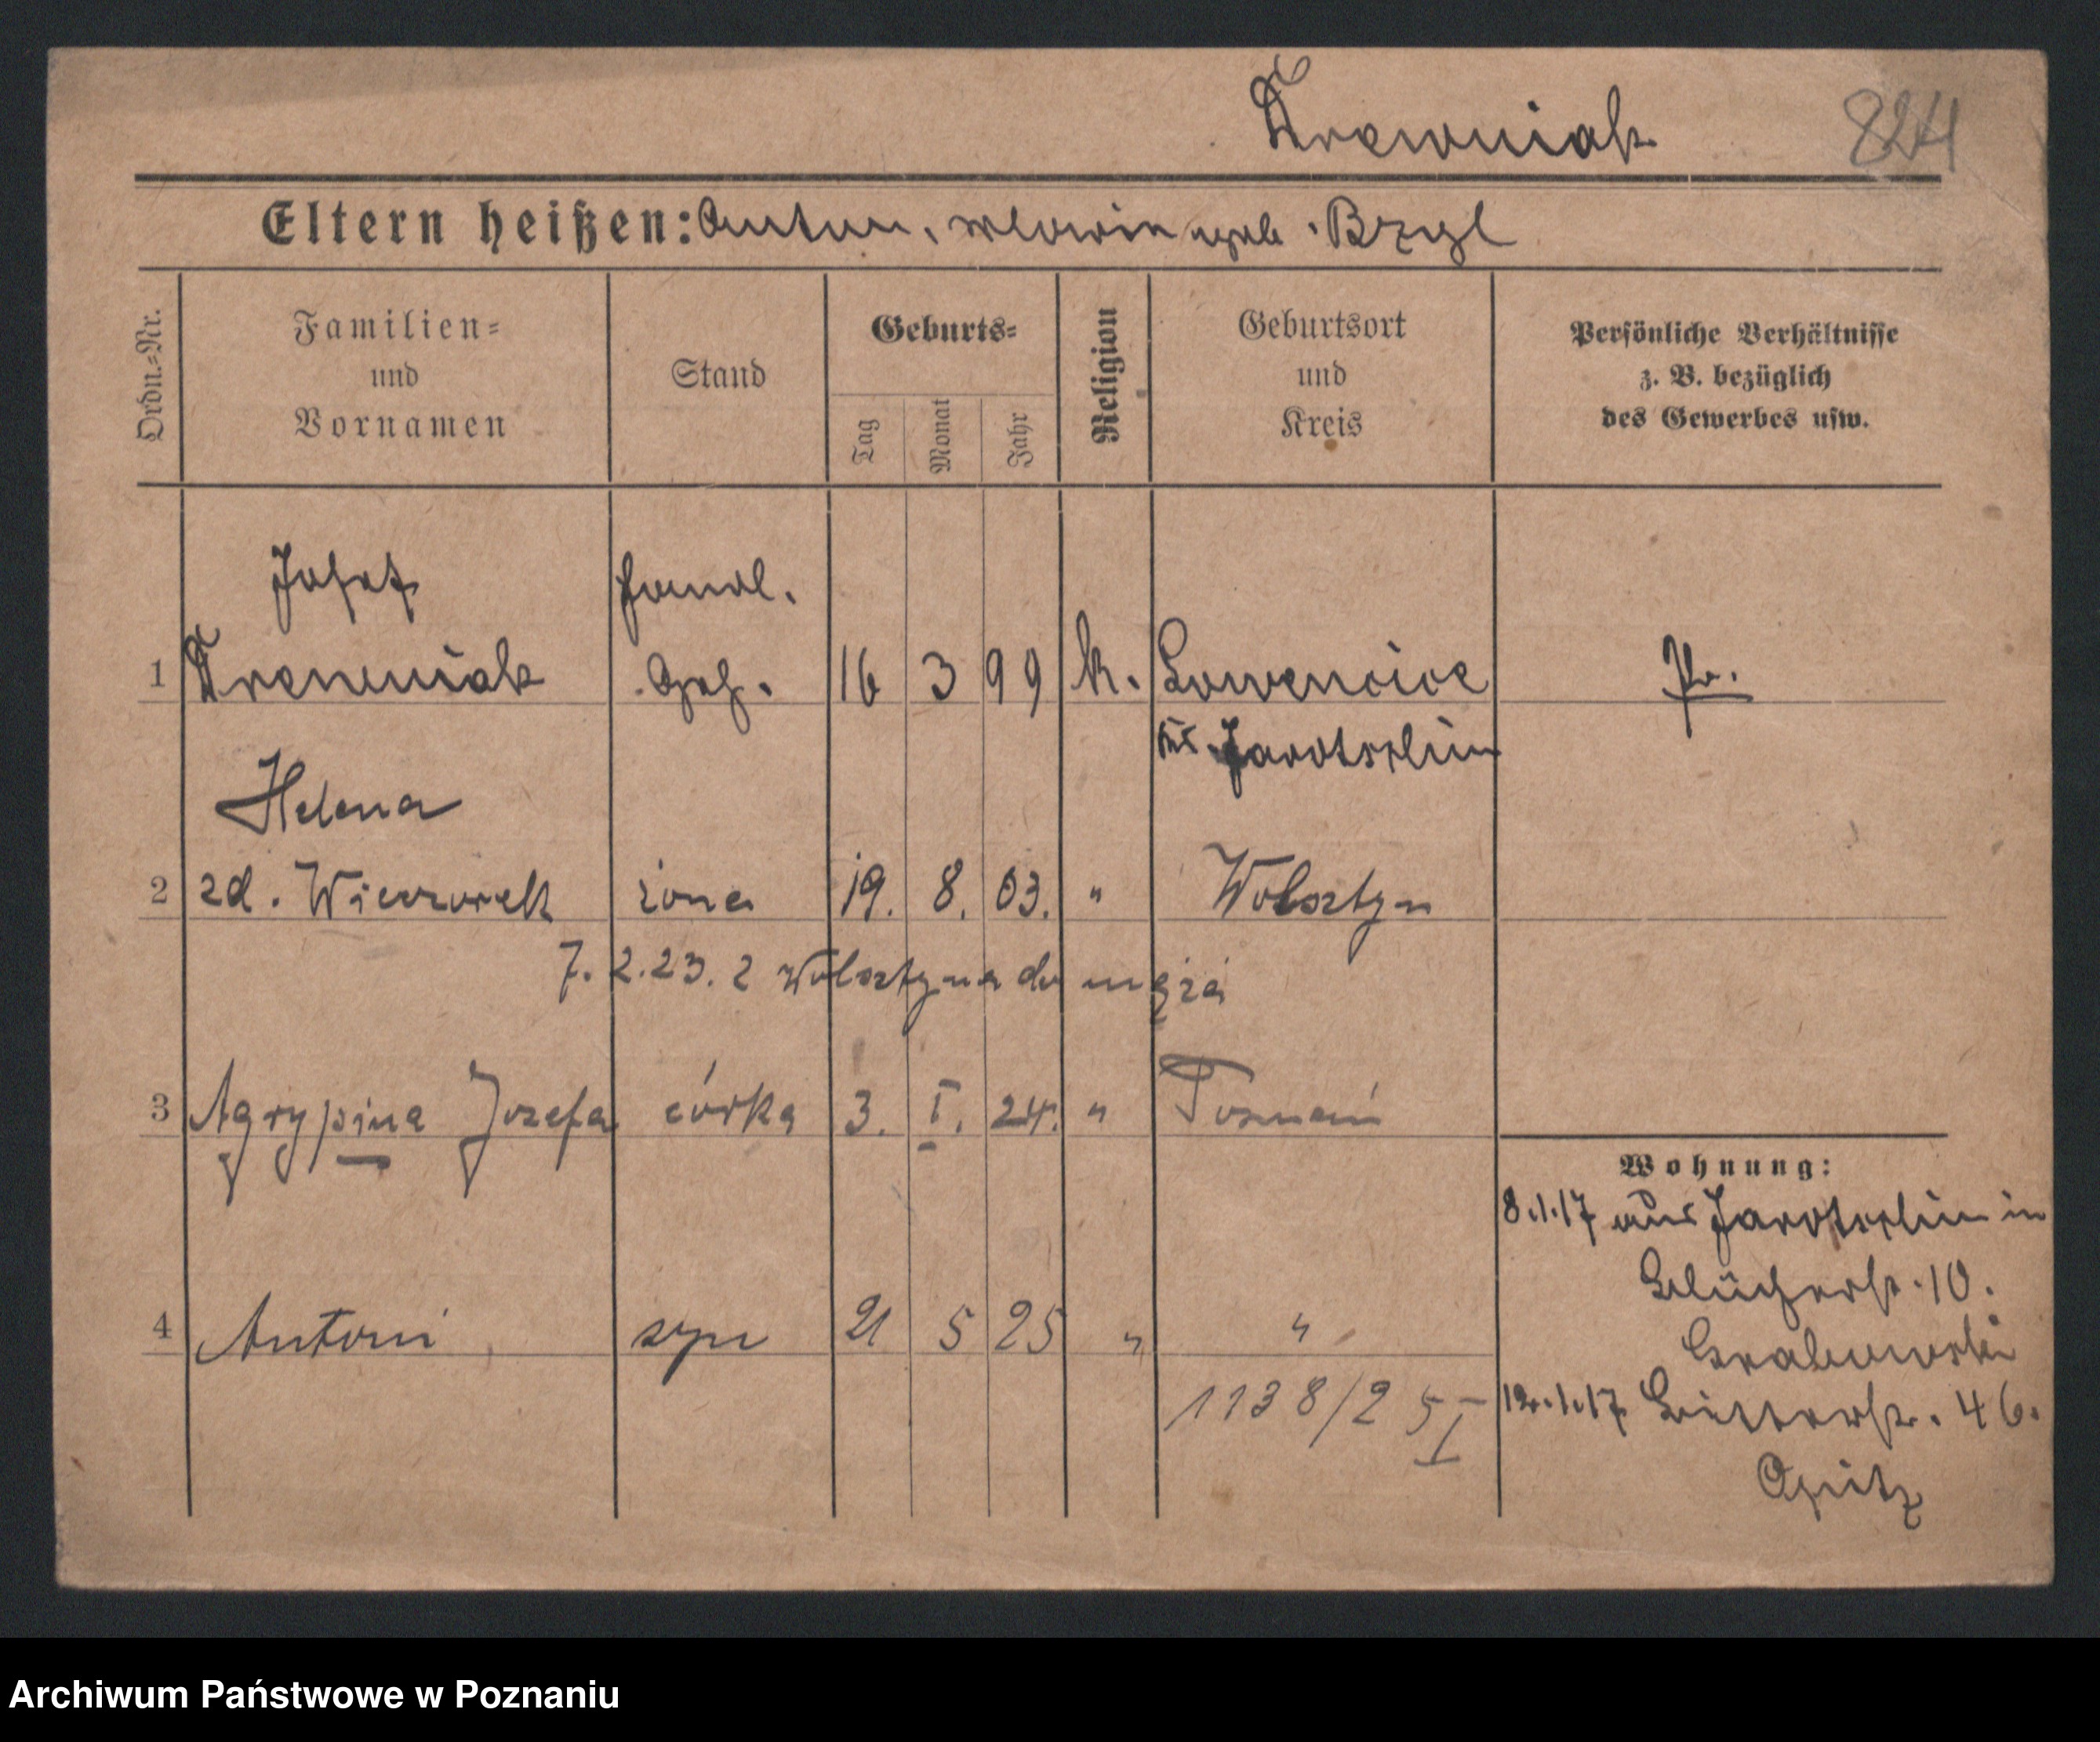 Drewniak 824
Eltern heißen: Anton, Maria geb. Bzyl
Ordn.-Nr.
Familien-
und
Vornamen
Stand
Geburts-
Tag
Monat
Jahr
Religion
Geburtsort
und
Kreis
Persönliche Verhältnisse
z. B. bezüglich
des Gewerbes usw.
Josef Handl.
1 Drewniak Geh. 16 3 99 k. Lowencice Pr.
Krs. Jarotschin
Helena
2 zd. Wieczorek żona 19. 8. 03. " Wolsztyn
7. 2. 23. z Wolsztyna do męża
3 Agrypina Józefa córka 3. I. 24. " Poznań
Wohnung:
8.1.17 aus Jarotschin in
Blücherstr. 10.
Grabowski
4 Antoni syn 21 5 25 " "
1138/25 I
12.1.17 Bitterstr. 46.
Opitz
Archiwum Państwowe w Poznaniu